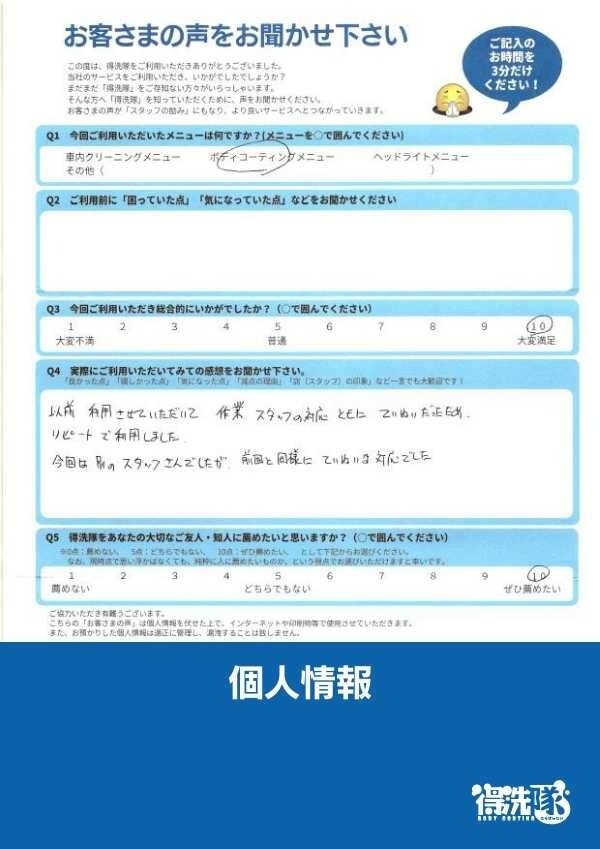 お客さまの声をお聞かせ下さい
ご記入の
お時間を
3分だけ
ください！
この度は、得洗隊をご利用いただきありがとうございました。
当社のサービスをご利用いただき、いかがでしたでしょうか？
まだまだ「得洗隊」をご存知ない方々がいらっしゃいます。
そんな方へ「得洗隊」を知っていただくために、声をお聞かせください。
お客さまの声が「スタッフの励み」にもなり、より良いサービスへとつながっていきます。
Q1 今回ご利用いただいたメニューは何ですか？(メニューを○で囲んでください)
車内クリーニングメニュー ボディコーティングメニュー ヘッドライトメニュー
その他（ ）
Q2 ご利用前に「困っていた点」「気になっていた点」などをお聞かせください
Q3 今回ご利用いただき総合的にいかがでしたか？（○で囲んでください）
1 2 3 4 5 6 7 8 9 10
大変不満 普通 大変満足
Q4 実際にご利用いただいてみての感想をお聞かせ下さい。
「良かった点」「嬉しかった点」「気になった点」「減点の理由」「店（スタッフ）の印象」など一言でも大歓迎です！
以前 利用させていただいて 作業 スタッフの対応 ともに ていねいだったため、
リピートで利用しました。
今回は別のスタッフさんでしたが、前回と同様に ていねいな対応でした
Q5 得洗隊をあなたの大切なご友人・知人に薦めたいと思いますか？（○で囲んでください）
※0点：薦めない、 5点：どちらでもない、 10点：ぜひ薦めたい、 として下記からお選びください。
なお、現時点で思い浮かばなくても、純粋に人に薦めたいものか、という視点でお選びいただけますと幸いです。
1 2 3 4 5 6 7 8 9 10
薦めない どちらでもない ぜひ薦めたい
ご協力いただき有難うございます。
こちらの「お客さまの声」は個人情報を伏せた上で、インターネットや印刷物等で使用させていただきます。
また、お預かりした個人情報は適正に管理し、漏洩することは致しません。
個人情報
得洗隊
BODY COATING